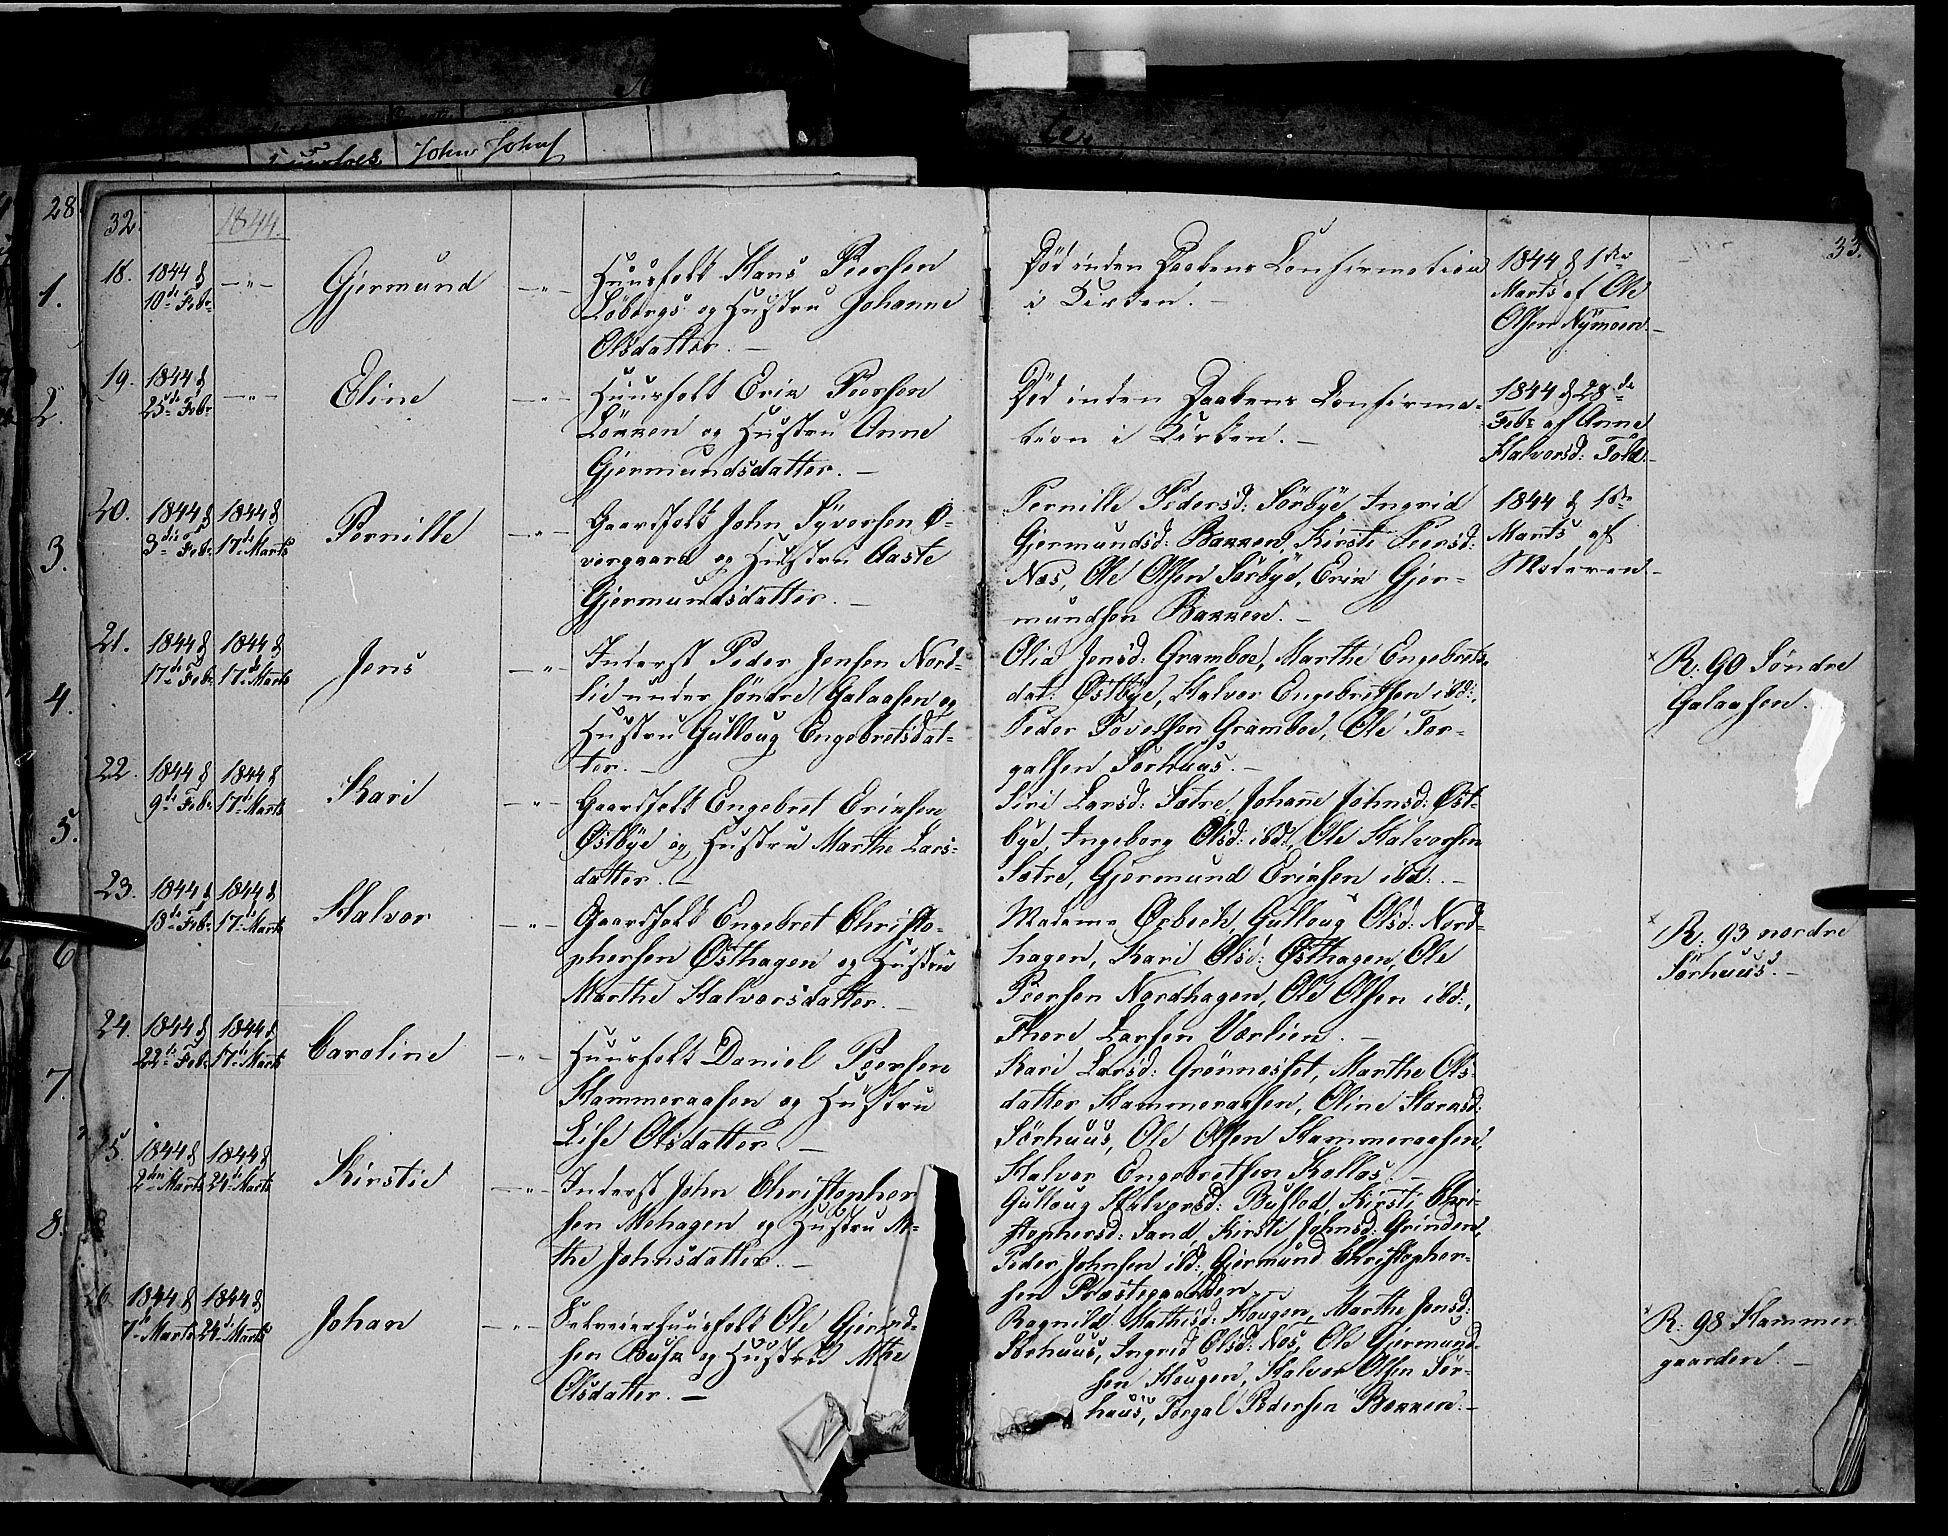 John Johns
28
32
1844.
33.
1.
18.
1844 d
10de Febr
Gjermund
Huusfolk Hans Peersen
Löbergs og Hustru Johanne
Olsdatter. —
Död inden Daabens Confirmation
i Kirken. —
1844 d 1ste
Marts af Ole
Olsen Nÿmoen —
2.
19.
1844 d
25de Febr
Eline
Huusfolk Erik Peersen
Lökken og Hustru Anne
Gjermundsdatter. —
Död inden Daabens Confirma-
tion i Kirken. —
1844 d 28de
Febr af Anne
Halvorsd:
3.
20.
1844 d
3die Febr
1844 d
17de Marts
Pernille
Gaardfolk John Syversen Ö-
vergaard og Hustru Aaste
Gjermundsdatter. —
Pernille Pedersd: Sörbye, Ingrid
Gjermundsd: Bakken, Kirsti Peersd:
Næs, Ole Olsen Sörbye, Erik Gjer-
mundsen Bakken. —
1844 d 1ste
Marts af
Moderen —
4.
21.
1844 d
17de Febr
1844 d
17de Marts
Jens
Inderst Peder Jensen Nord-
lie under söndre Galaasen og
Hustru Gulloug Engebretsdat-
ter. —
Olia Jensd: Gramboe, Marthe Engebrets-
dat: Östbye, Halvor Engebretsen ibd:,
Peder Povelsen Gramboe, Ole Tor-
galsen Sörhuus. —
R: 90 Söndre
Galaasen.
5.
22.
1844 d
9de Febr
1844 d
17de Marts
Kari
Gaardfolk Engebret Eriksen
Østbÿe og Hustru Marthe Lars-
datter. —
Siri Larsd: Sætre, Johane Johnsd: Öst-
bye, Ingeborg Olsd: ibd:, Ole Halvorsen
Sætre, Gjermund Eriksen ibd: —
6
23.
1844 d
18de Febr
1844 d
17de Marts
Halvor
Gaardfolk Engebret Christo-
phersen Østhagen og Hustru
Marthe Halvorsdatter. —
Madame Ørbech, Gulloug Olsd: Nord-
hagen, Kari Olsd: Østhagen, Ole
Peersen Nordhagen, Ole Olsen ibd:,
Thore Larsen Værlien. —
R: 93 nordre
Sörhuus. —
7.
24.
1844 d
22de Febr
1844 d
17de Marts
Caroline
Huusfolk Daniel Peersen
Hammeraasen og Hustru
Lise Olsdatter. —
Kari Larsd: Grönnæsset, Marthe Ols-
datter Hammeraasen, Eline
Sörhuus, Ole Olsen Hammeraasen,
Halvor Engebretsen Kolloes. —
8.
25.
1844 d
2den Marts
1844 d
24de Marts
Kirstie
Inderst John Christopher
sen Mehagen og Hustru M-
the Johnsdatter. —
Gulloug Halvorsd: Buflod, Kirsti Chri-
stophersd: Sand, Kirsti Johnsd: Grinden,
Peder Johnsen ibd:, Gjermund Christopher-
sen Præstegaarden.
26.
1844 d
7de Marts
1844 d
24de Marts
Johan
Selveierhuusfolk Ole Gjermund-
sen og Hustru Mthe
Olsdatter. —
Ragnild Mathisd: Hougen, Marthe Jensd:
Sörhuus, Ingrid Olsd: Næs, Ole Gjermund-
sen Hougen, Halvor Olsen Sör-
huus, Torgal Pedersen Bakken. —
R: 98 Hammer
gaarden. —